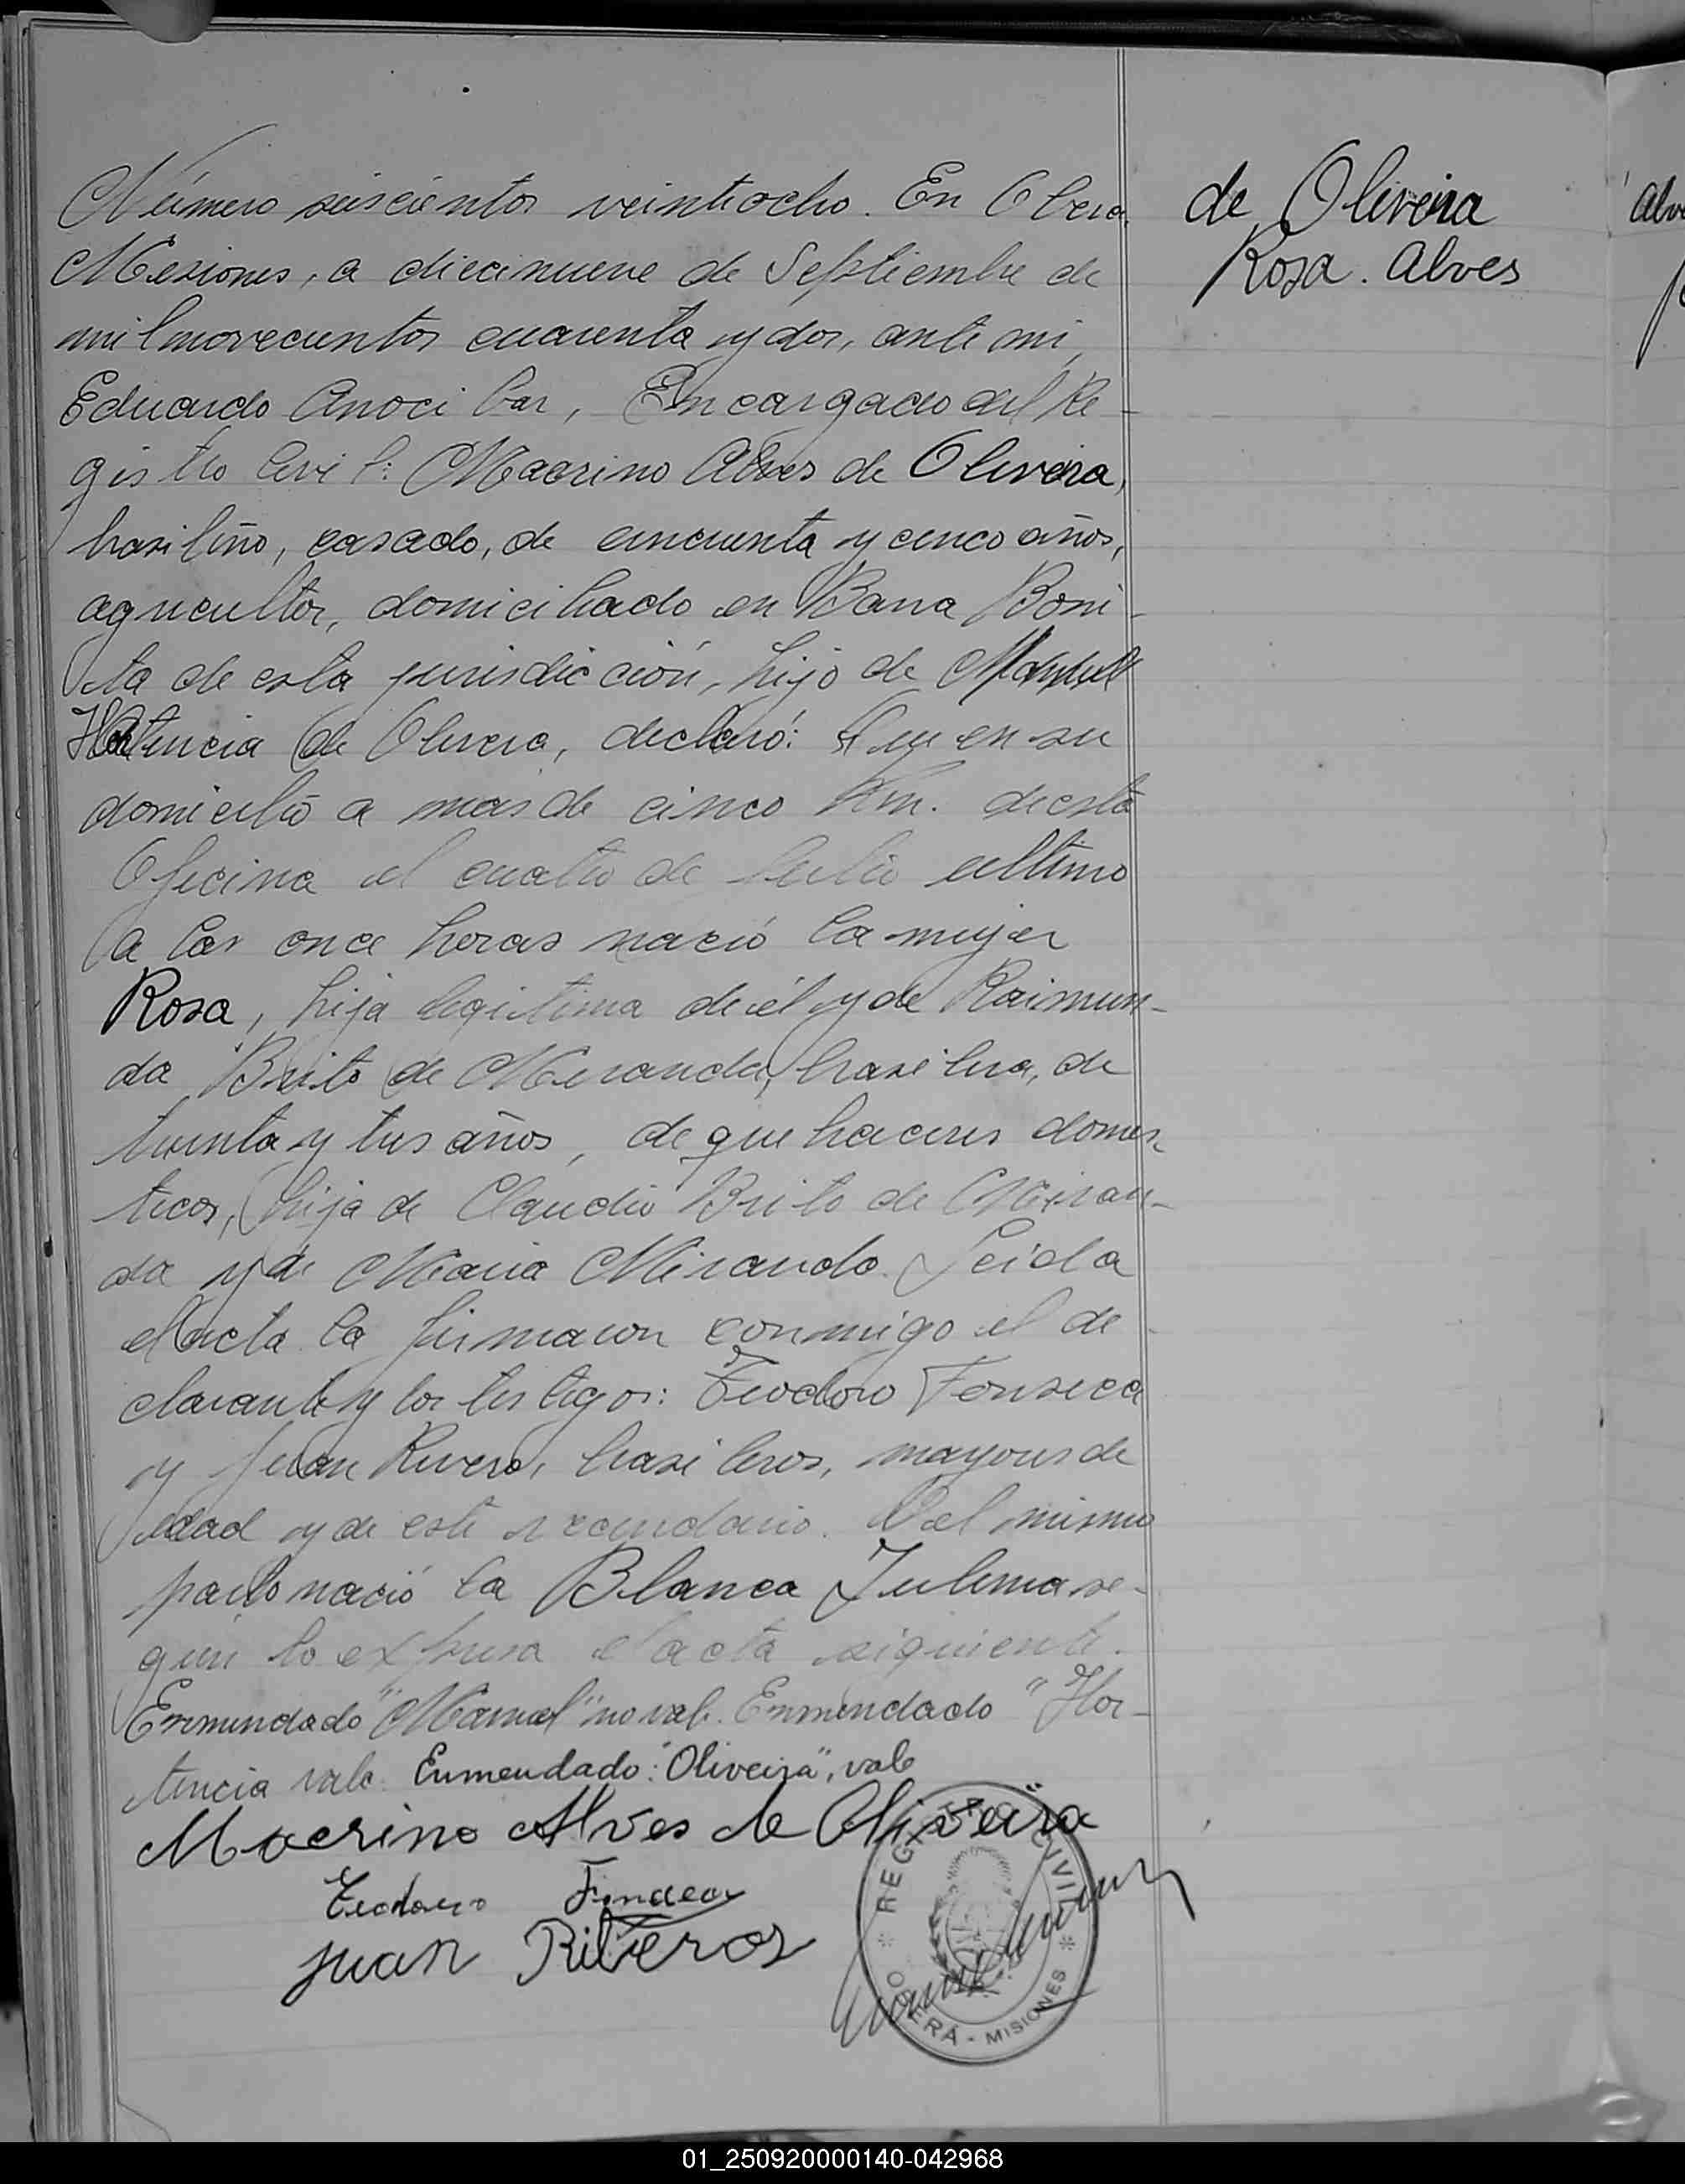 Número seiscientos veintiocho. En Obera
Misiones, a diecinueve de Septiembre de
mil novecientos cuarenta y dos, ante mi,
Eduardo Anocibar, Encargado del Re-
gistro Civil: Macrino Alves de Oliveira,
brasileño, casado, de cincuenta y cinco años,
agricultor, domiciliado en Barra Boni-
ta de esta jurisdicción, hijo de
Hortencia de Olivera, declaró: Que en su
domicilio a mas de cinco Km. de esta
Oficina el cuatro de Julio ultimo
a las once horas nació la mujer
Rosa, hija legitima de él y de Raimun-
da Brito de Miranda, brasilera, de
treinta y tres años, de que haceres domes-
ticos, hija de Claudio Brito de Miran-
da y de Maria Miranda. Leida
el acta la firmaron conmigo el de
clarante y los testigos: Teodoro Fonseca
y Juan Rivero, brasileros, mayores de
edad y de este vecindario. Del mismo
parto nació la Blanca Zulema se-
gún lo expresa el acta siguiente.
Enmendado "Manuel" no vale. Enmendado "Hor-
tencia vale. Enmendado: "Oliveira", vale
Macrino Alves de Oliveira
Teodoro
Juan Riveros
REGISTRO CIVIL
OBERÁ - MISIONES
de Oliveira
Rosa. Alves
Alv
01_250920000140-042968